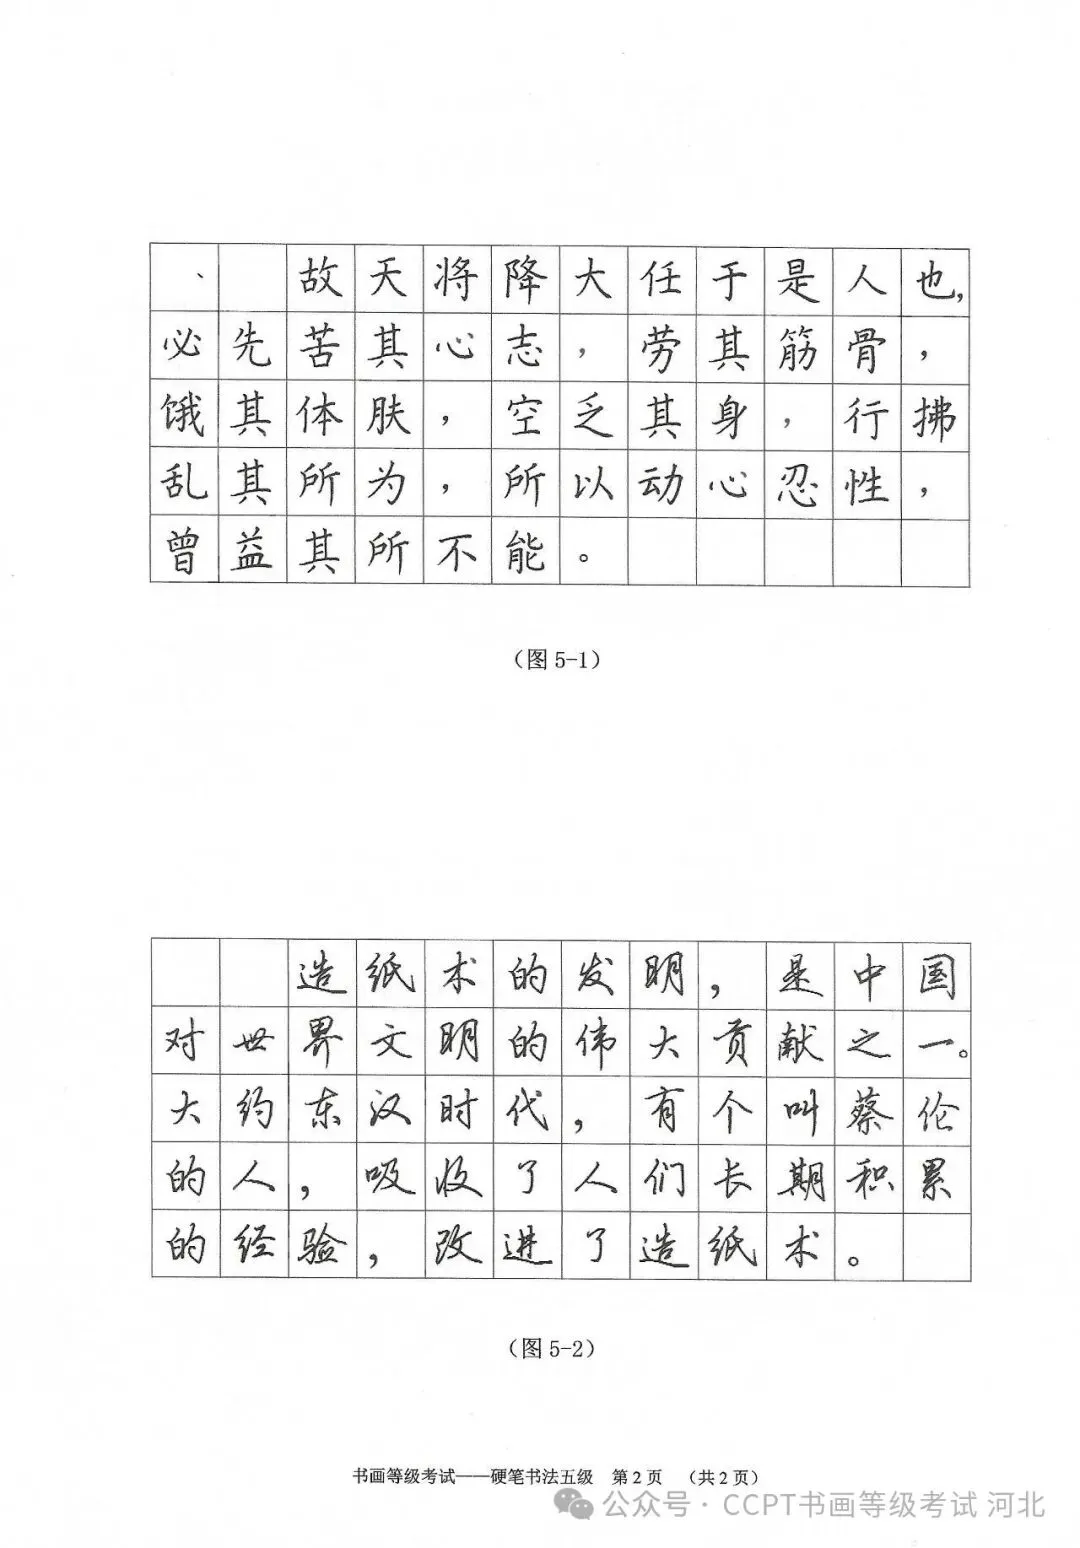 故天将降大任于是人也,
必先苦其心志，劳其筋骨，
饿其体肤，空乏其身，行拂
乱其所为，所以动心忍性，
曾益其所不能。
（图 5-1）
造纸术的发明，是中国
对世界文明的伟大贡献之一。
大约东汉时代，有个叫蔡伦
的人，吸收了人们长期积累
的经验，改进了造纸术。
（图 5-2）
书画等级考试——硬笔书法五级 第 2 页 （共 2 页）
公众号 · CCPT书画等级考试 河北